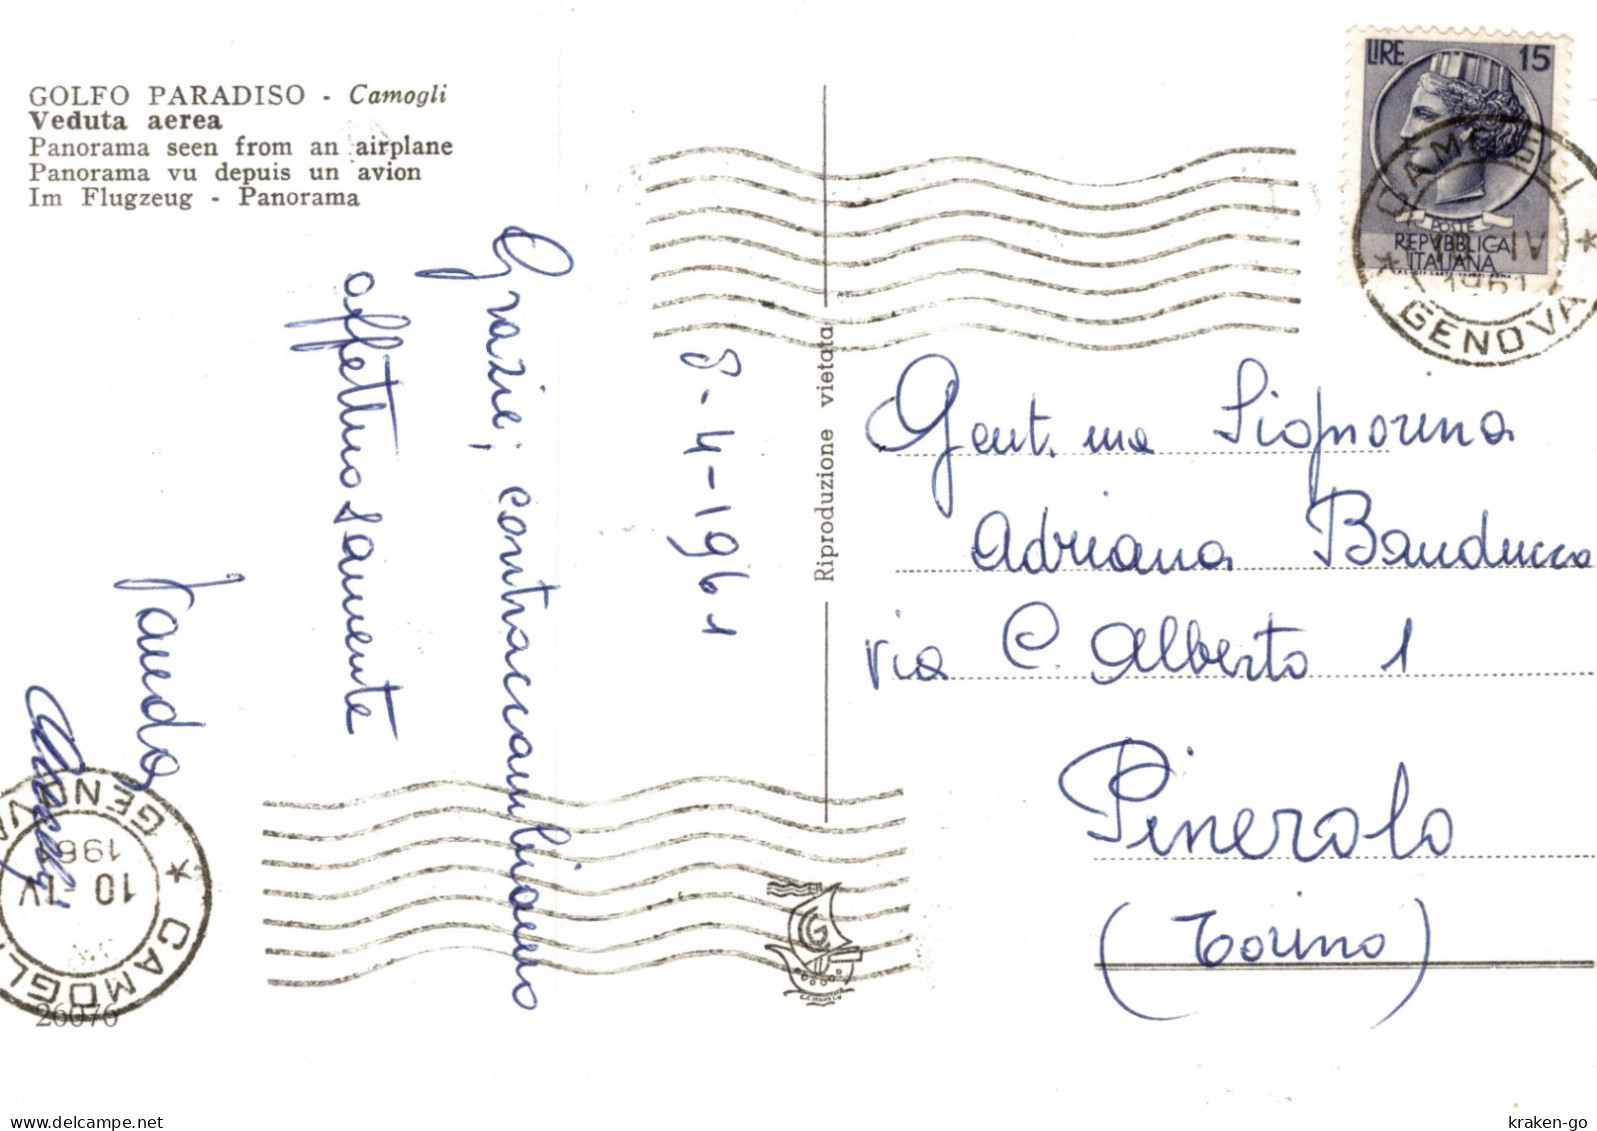 GOLFO PARADISO - Camogli
Veduta aerea
Panorama seen from an airplane
Panorama vu depuis un avion
Im Flugzeug - Panorama
LIRE 15
POSTE
REPVBBLICA
ITALIANA
CAMOGLI
IV
1961
GENOVA
8-4-1961
Grazie; contraccambiamo
affettuosamente
Riproduzione vietata
Gent.ma Signorina
Adriana Banducco
via C. Alberto 1
Pinerolo
(Torino)
GENOVA
196
10 IV
CAMOGLI
26076
delcampe.net
kraken-go